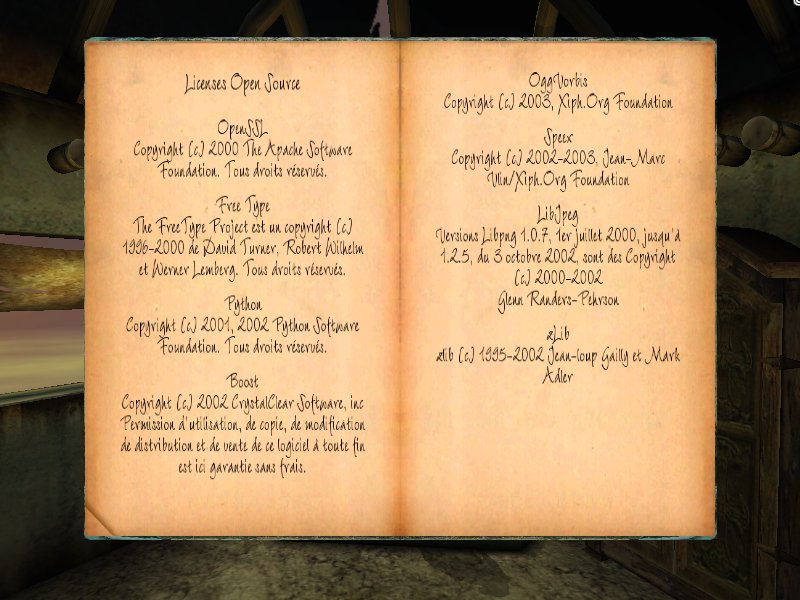 Licenses Open Source
OpenSSL
Copyright (c) 2000 The Apache Software
Foundation. Tous droits réservés.
Free Type
The FreeType Project est un copyright (c)
1996-2000 de David Turner, Robert Wilhelm
et Werner Lemberg. Tous droits réservés.
Python
Copyright (c) 2001, 2002 Python Software
Foundation. Tous droits réservés.
Boost
Copyright (c) 2002 CrystalClear Software, inc
Permission d'utilisation, de copie, de modification
de distribution et de vente de ce logiciel à toute fin
est ici garantie sans frais.
OggVorbis
Copyright (c) 2003, Xiph.Org Foundation
Speex
Copyright (c) 2002-2003, Jean-Marc
Vlin/Xiph.Org Foundation
LibJpeg
Versions Libpng 1.0.7, 1er juillet 2000, jusqu'à
1.2.5, du 3 octobre 2002, sont des Copyright
(c) 2000-2002
Glenn Randers-Pehrson
zLib
zlib (c) 1995-2002 Jean-loup Gailly et Mark
Adler